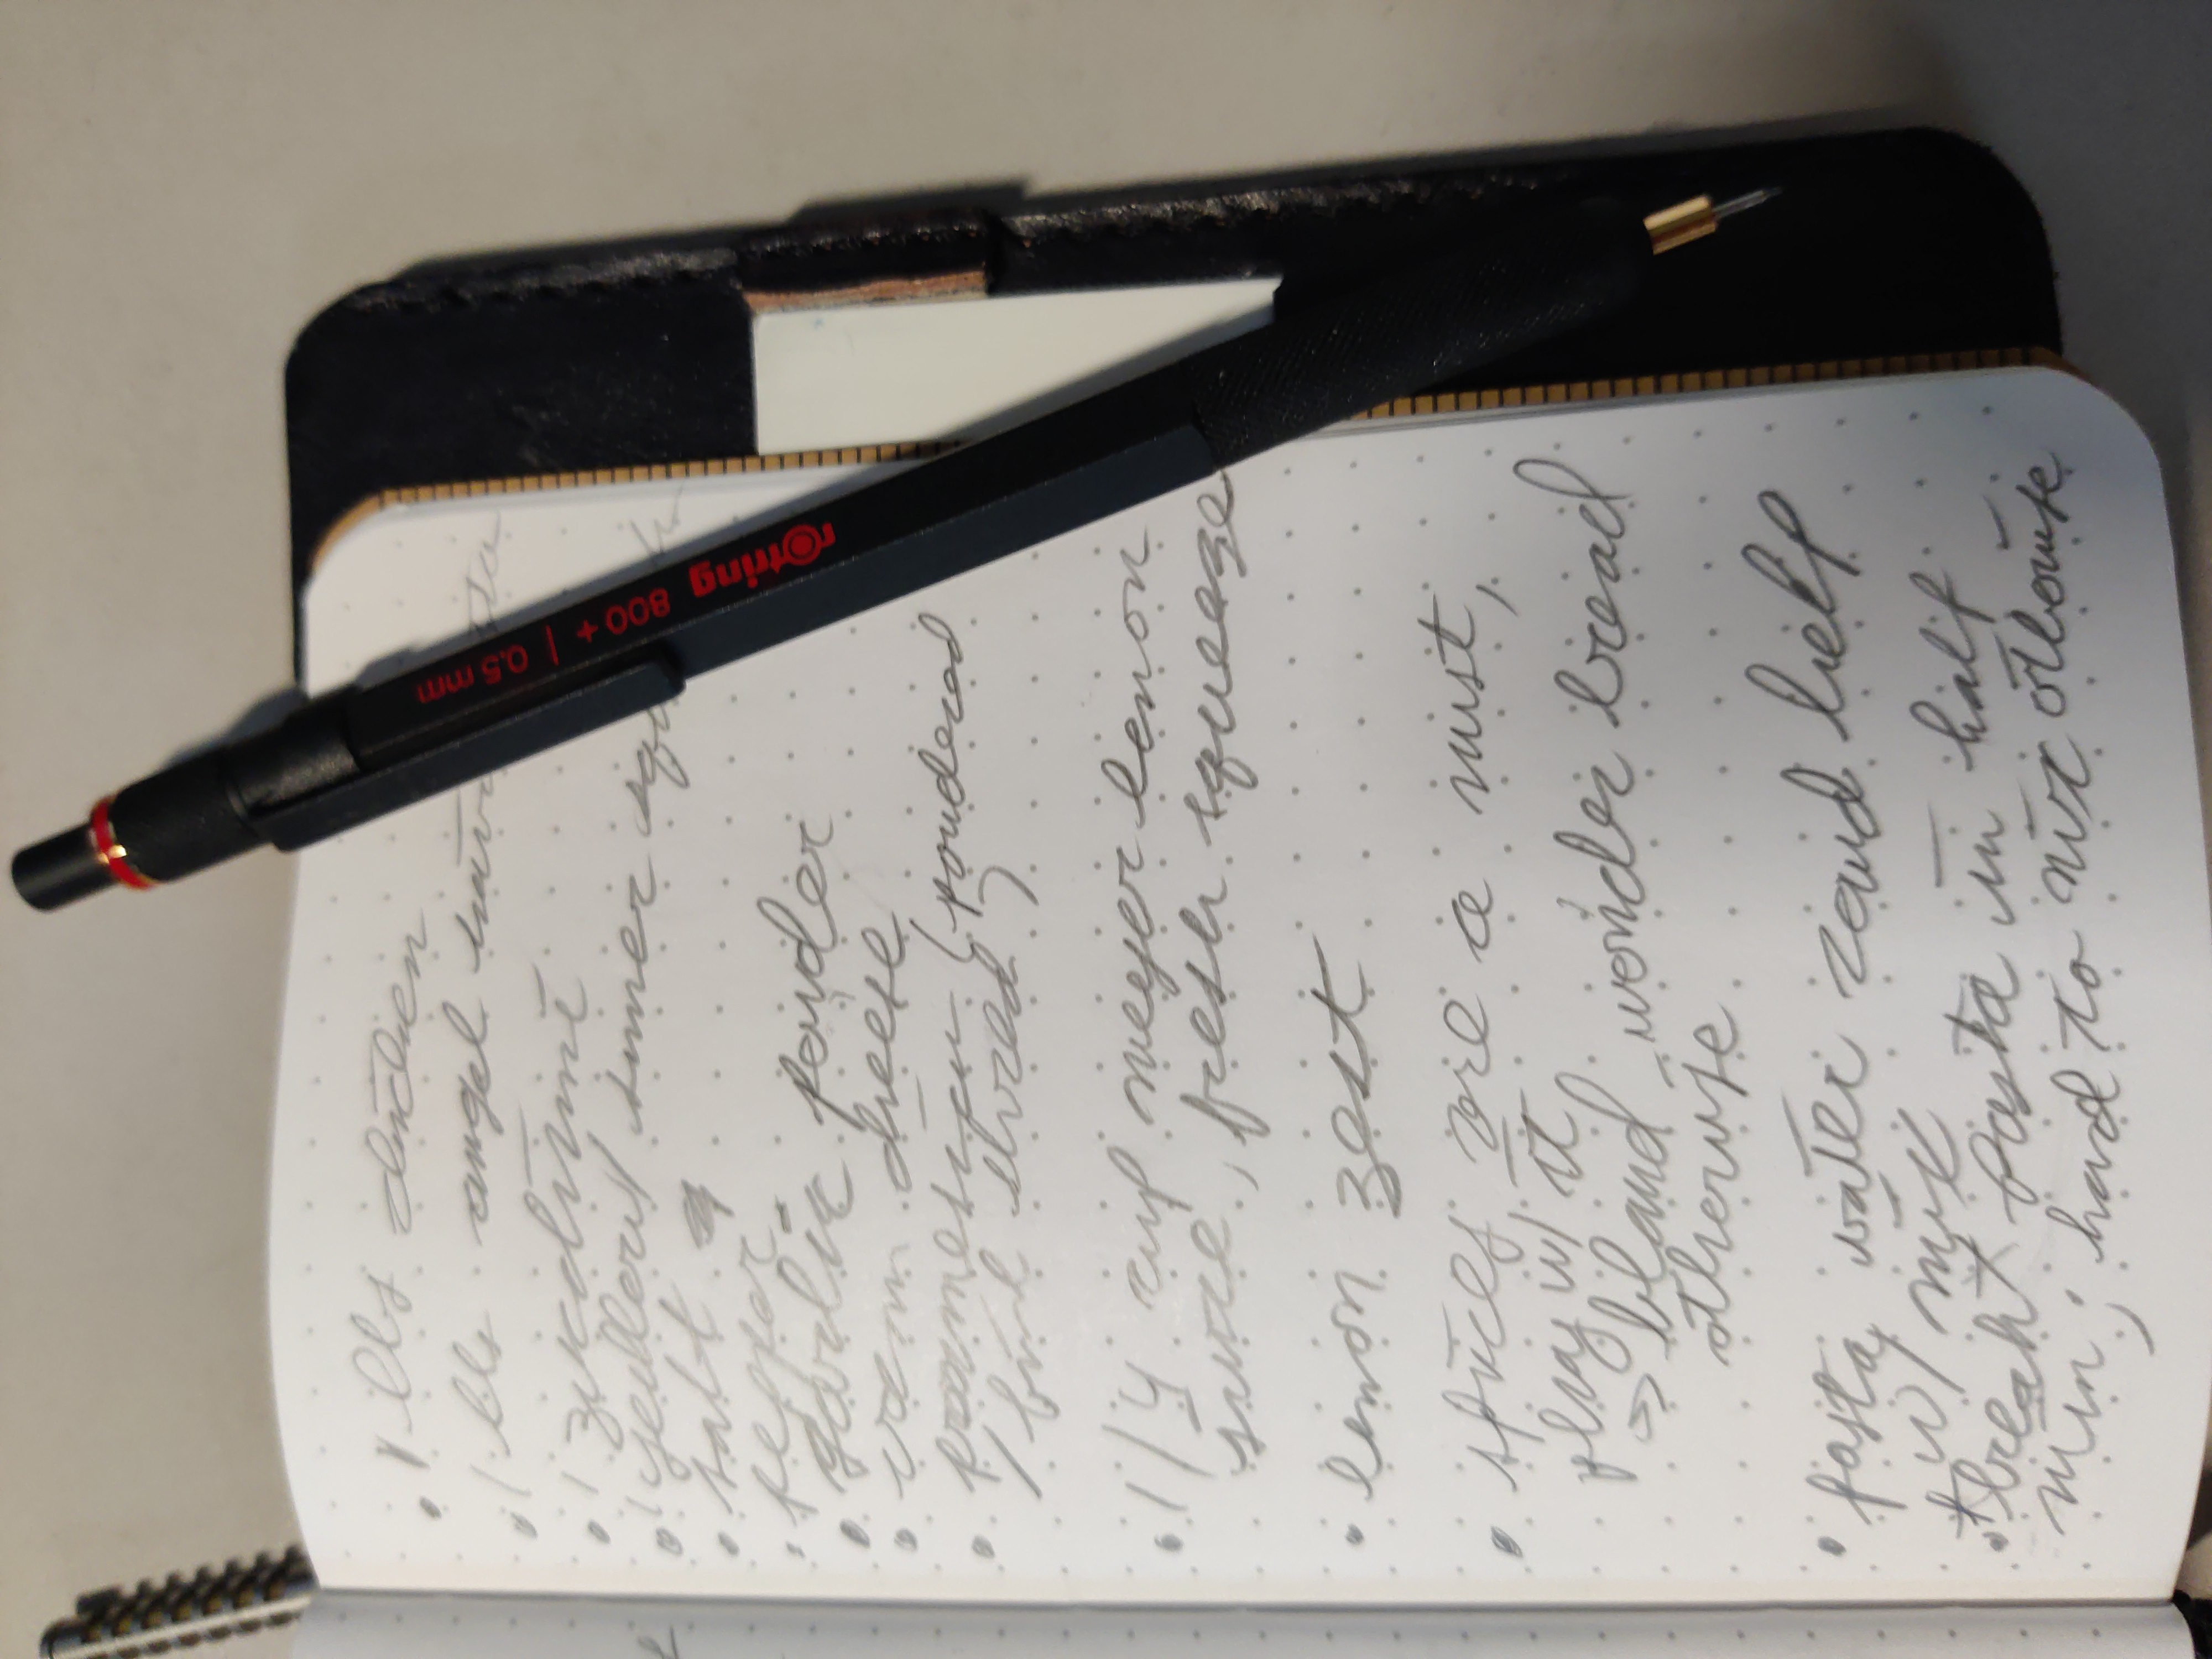 • 1 lbs chicken
• 1 lbs angel hair
• 1 zucchini
• 1 yellow / summer squ
• salt
• pepper
• garlic powder
• cream cheese
• parmesian (powdered
/ fine shred)
• 1/4 cup meyer lemon
juice, fresh squeeze
• lemon zest
• spices are a must,
play w/ it
→ bland wonder bread
otherwise
• pasta water coud help
w/ mix
• *break* pasta in half
min; hard to mix otherwise
rotring 800+ | 0.5 mm